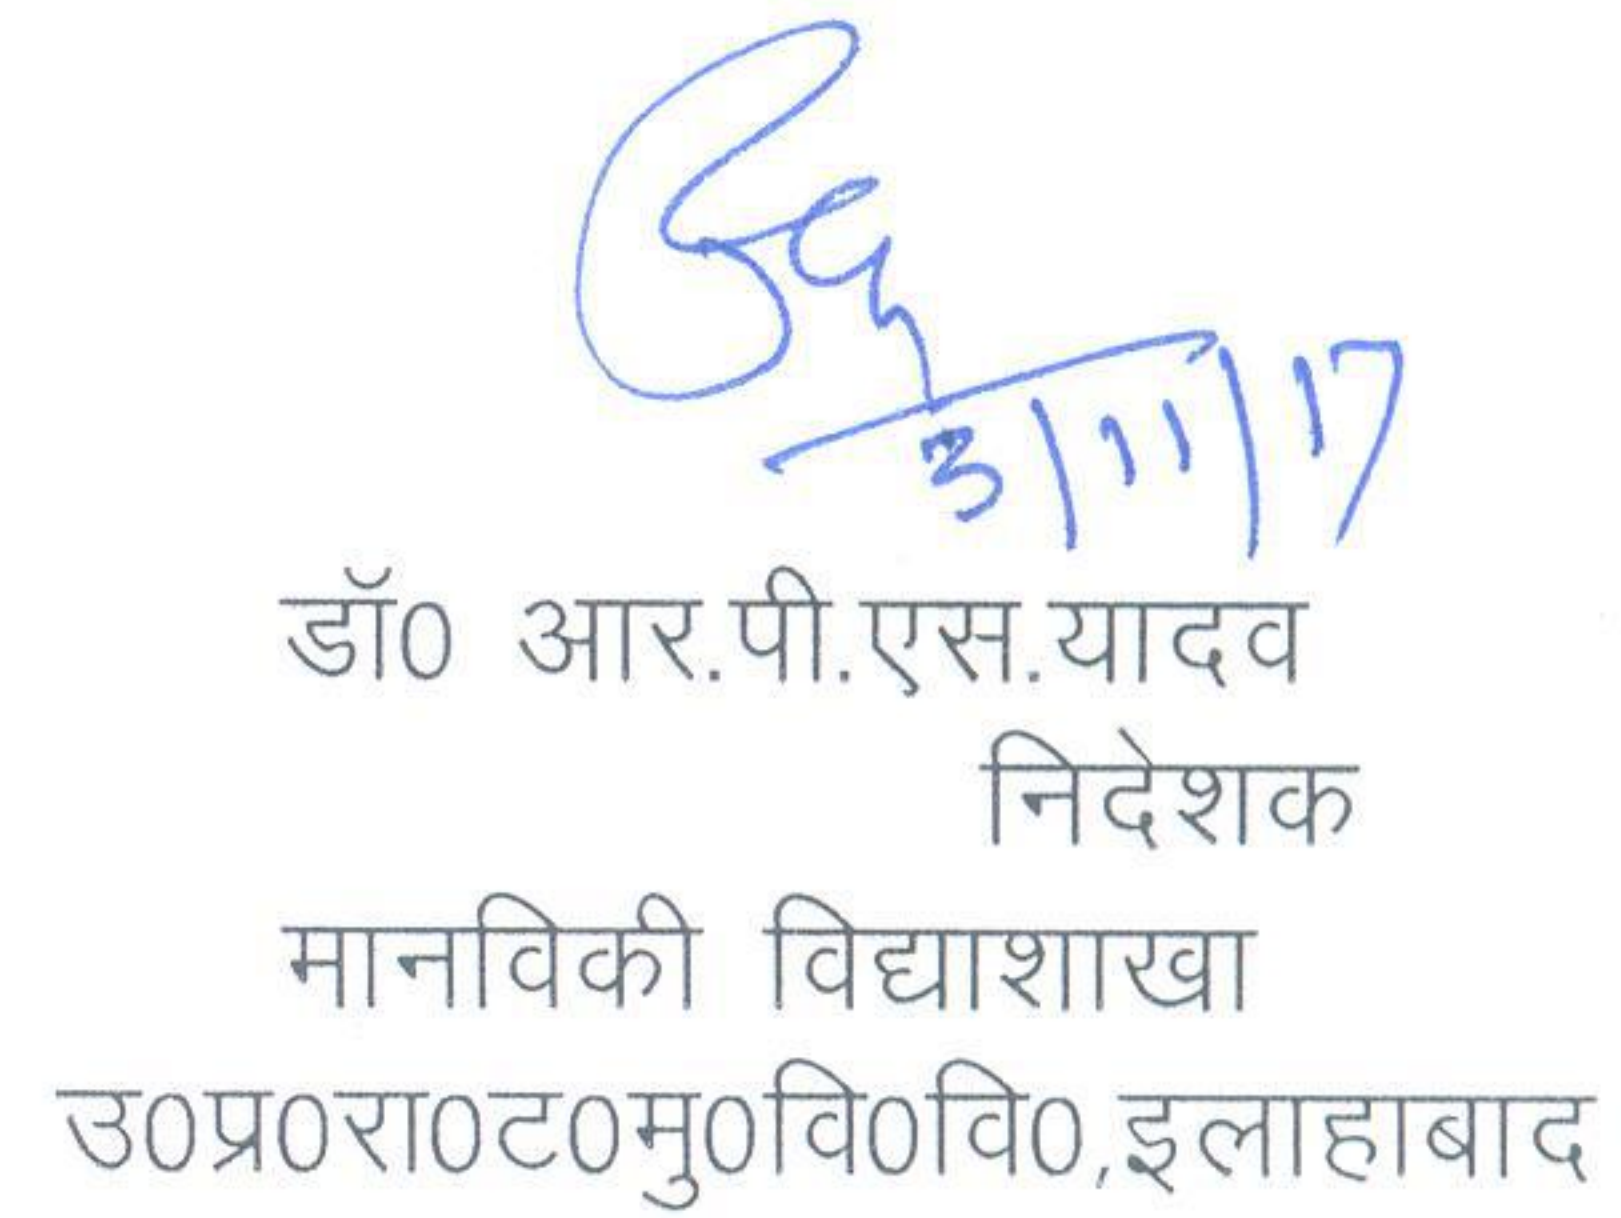 3/11/17
डॉ0 आर.पी.एस.यादव
निदेशक
मानविकी विद्याशाखा
उ0प्र0रा0ट0मु0वि0वि0,इलाहाबाद